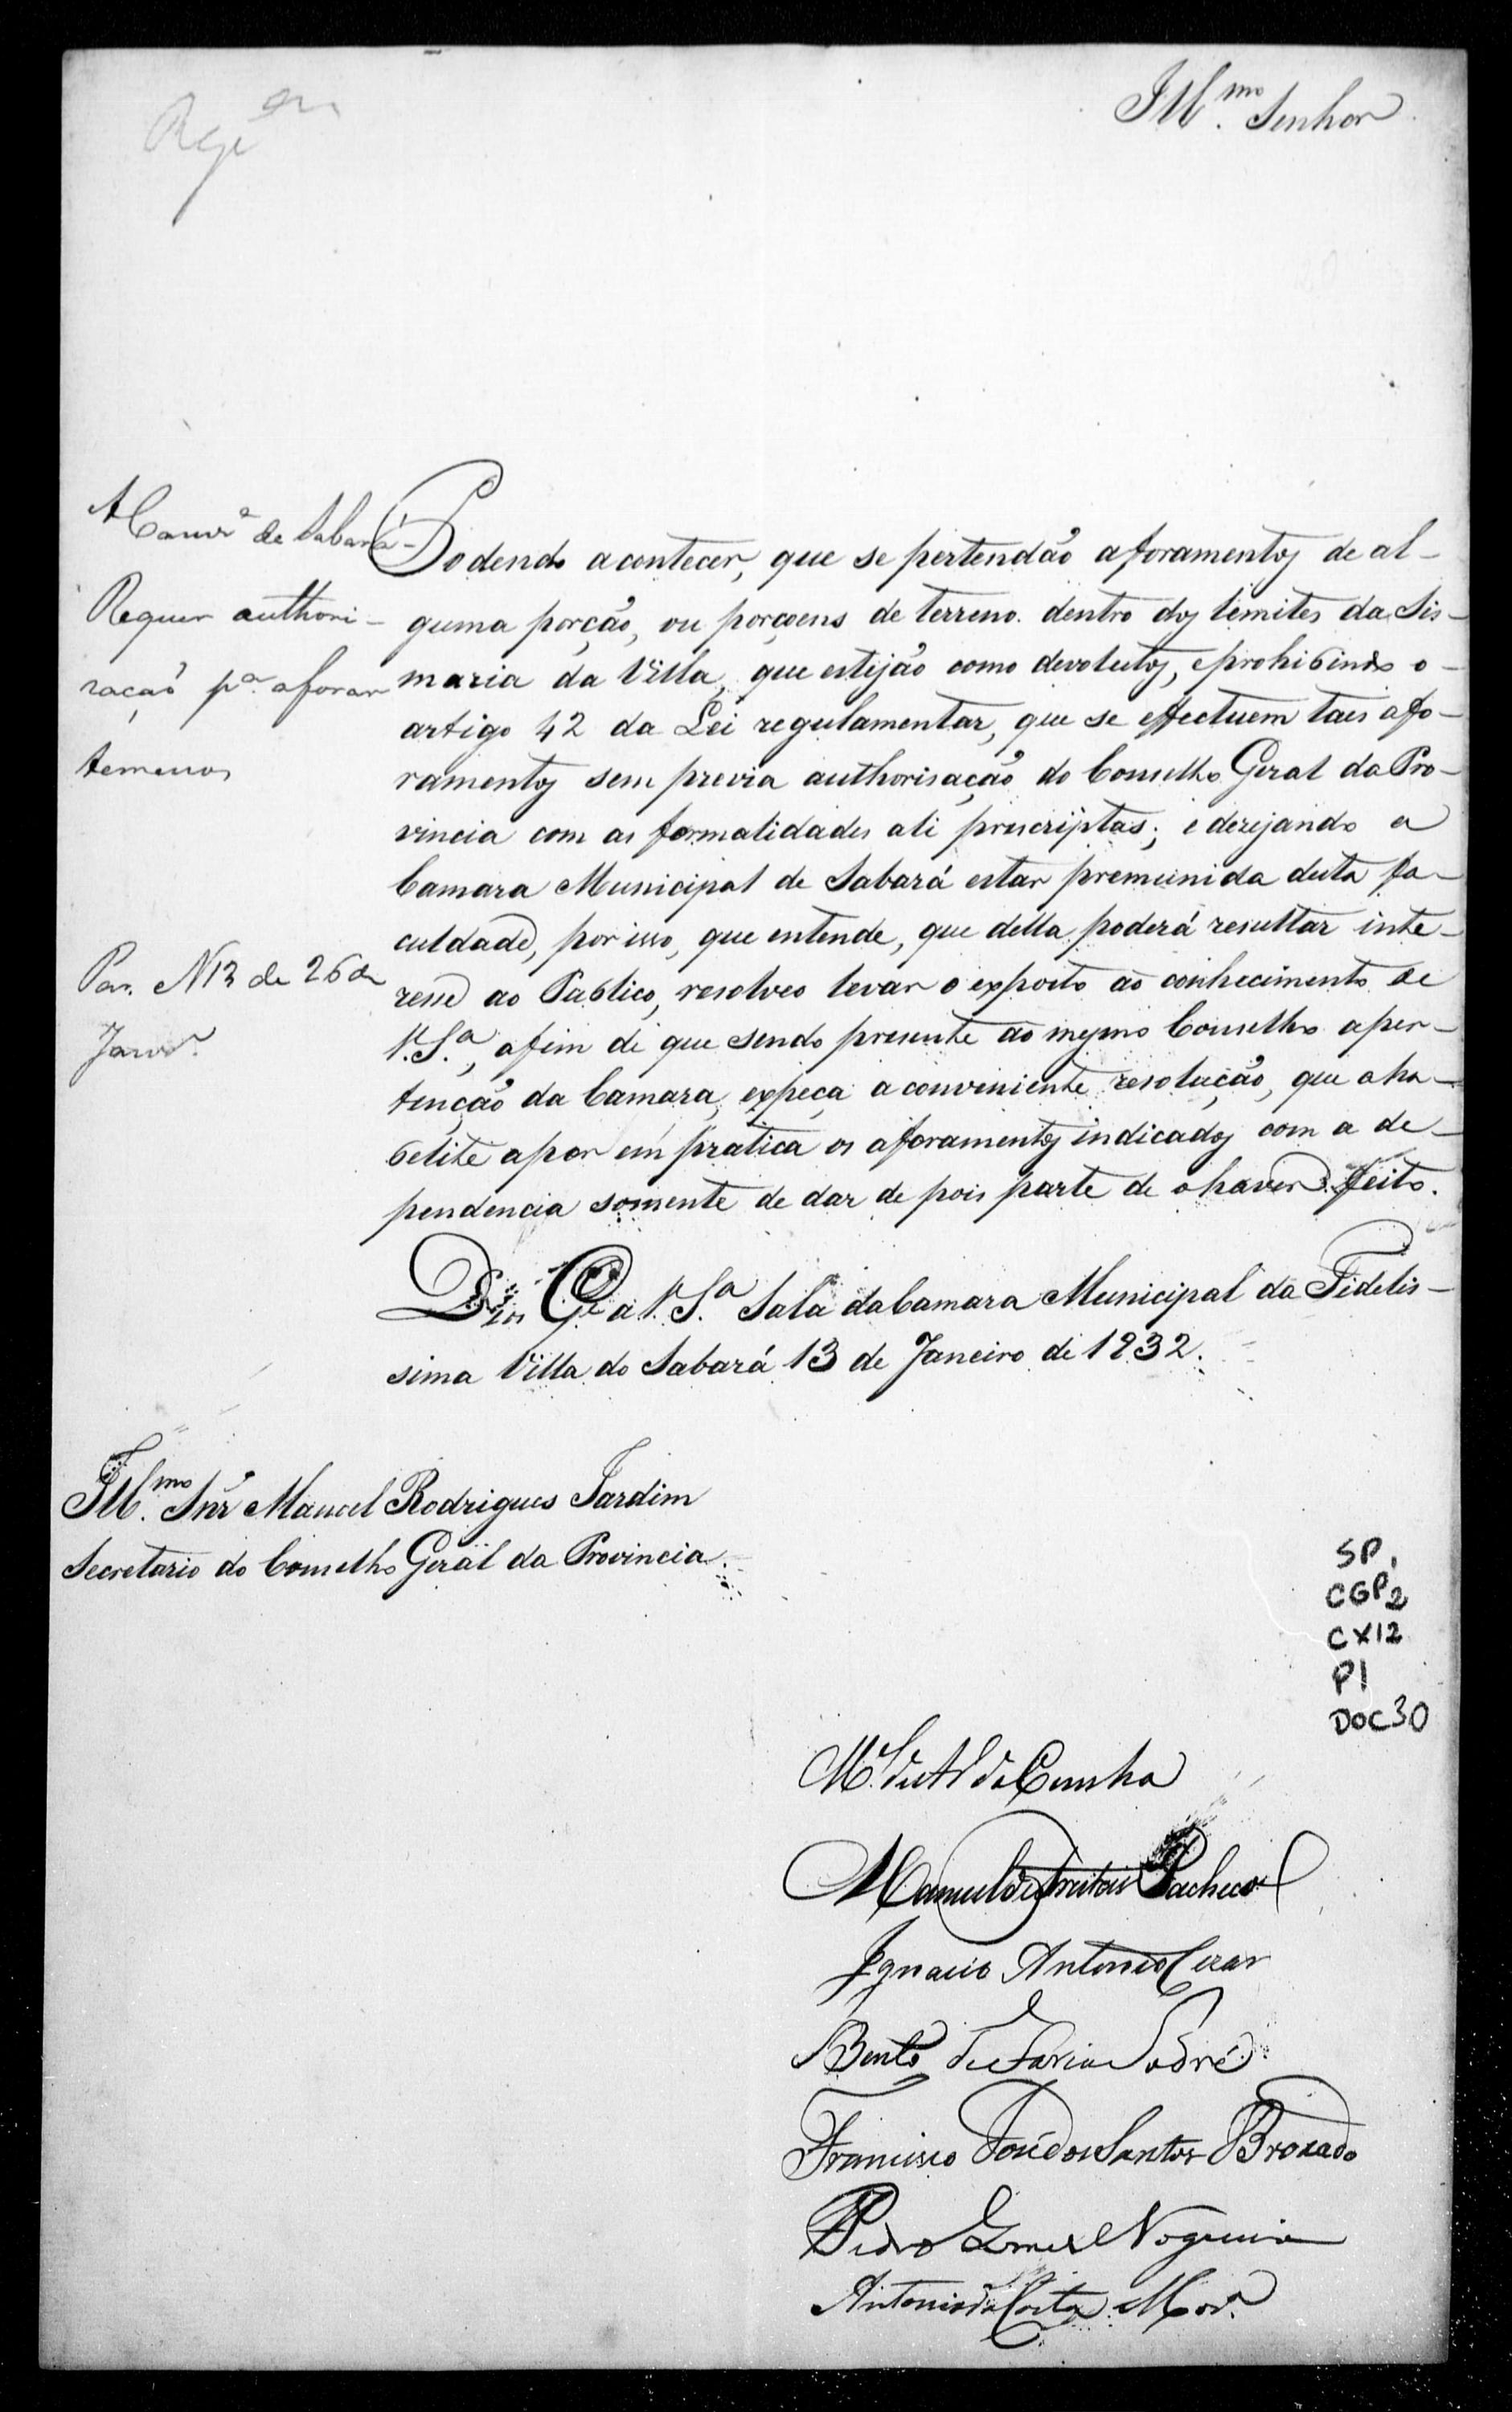 Ill.mo Senhor
A Camr.a de Sabará
Requer authori-
zaçaõ p.a aforar
terrenos
Par. N 12 de 26 de
Janr.o
Podendo acontecer, que se pertendão aforamentos de al-
guma porção, ou porçoens de terreno dentro dos limites da Sis-
maria da Villa, que estejão como devolutos, e prohibindo o
artigo 42 da Lei regulamentar, que se effectuem taes afo-
ramentos sem previa authorisação do Conselho Geral da Pro-
vincia com as formalidades ali prescriptas; e dezejando a
Camara Municipal de Sabará estar premunida desta fa-
culdade, por isso, que entende, que della poderá resultar inte-
resse ao Publico, resolveo levar o exposto ao conhecimento de
V. S.a, afim de que sendo presente ao mesmo Conselho a per-
tenção da Camara, expeça a conveniente resolução, que a ha-
belite a por em pratica os aforamentos indicados com a de-
pendencia somente de dar de pois parte de o haver feito.
Deos G.e a V. S.a Sala da Camara Municipal da Fidelis-
sima Villa do Sabará 13 de Janeiro de 1832.
Ill.mo Snr Manoel Rodrigues Jardim
Secretario do Conselho Geral da Provincia.
SP1
CGP2
CX12
P1
DOC30
M.el de da Cunha
Manuel de Freitas Pacheco
Ignacio Antonio Cezar
Bento de Faria Sodré
Francisco José dos Santos Brochado
Pedro Gomes Nogueira
Antonio da Costa Mor.a